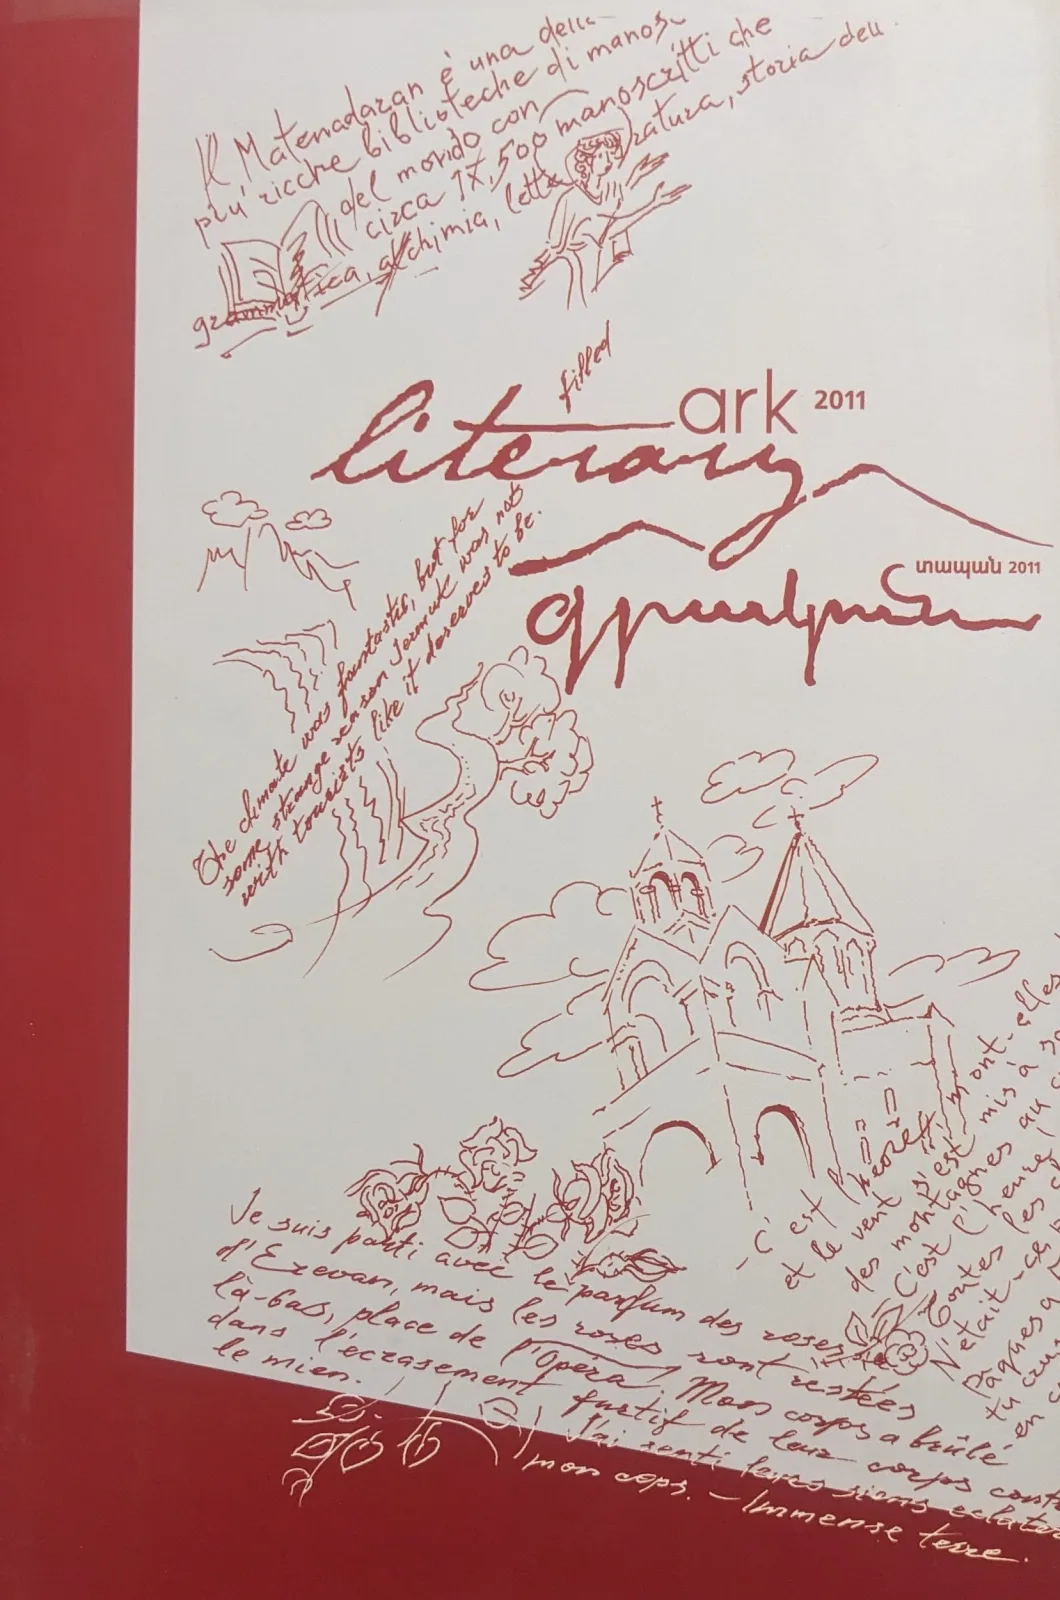 Il Matenadaran è una delle
più ricche biblioteche di manos-
del mondo con
circa 17,500 manoscritti che
grammatica, alchimia, letteratura, storia dell
filled
literary ark 2011
գրական տապան 2011
The climate was fantastic, but for
some strange reason Jermuk was not
with tourists like it deserves to be.
- C'est l'heure
et le vent s'est mis à
des montagnes au
C'est l'heure!
Toutes les
N'était-ce
Pâques
tu
en
mont- elles
Je suis parti avec le parfum des roses
d'Erevan, mais les roses sont restées
là-bas, place de l'Opéra. Mon corps a brûlé
dans l'écrasement furtif de leur corps contre
le mien. J'ai senti leurs siens eclater
mon cops. – Immense terre.